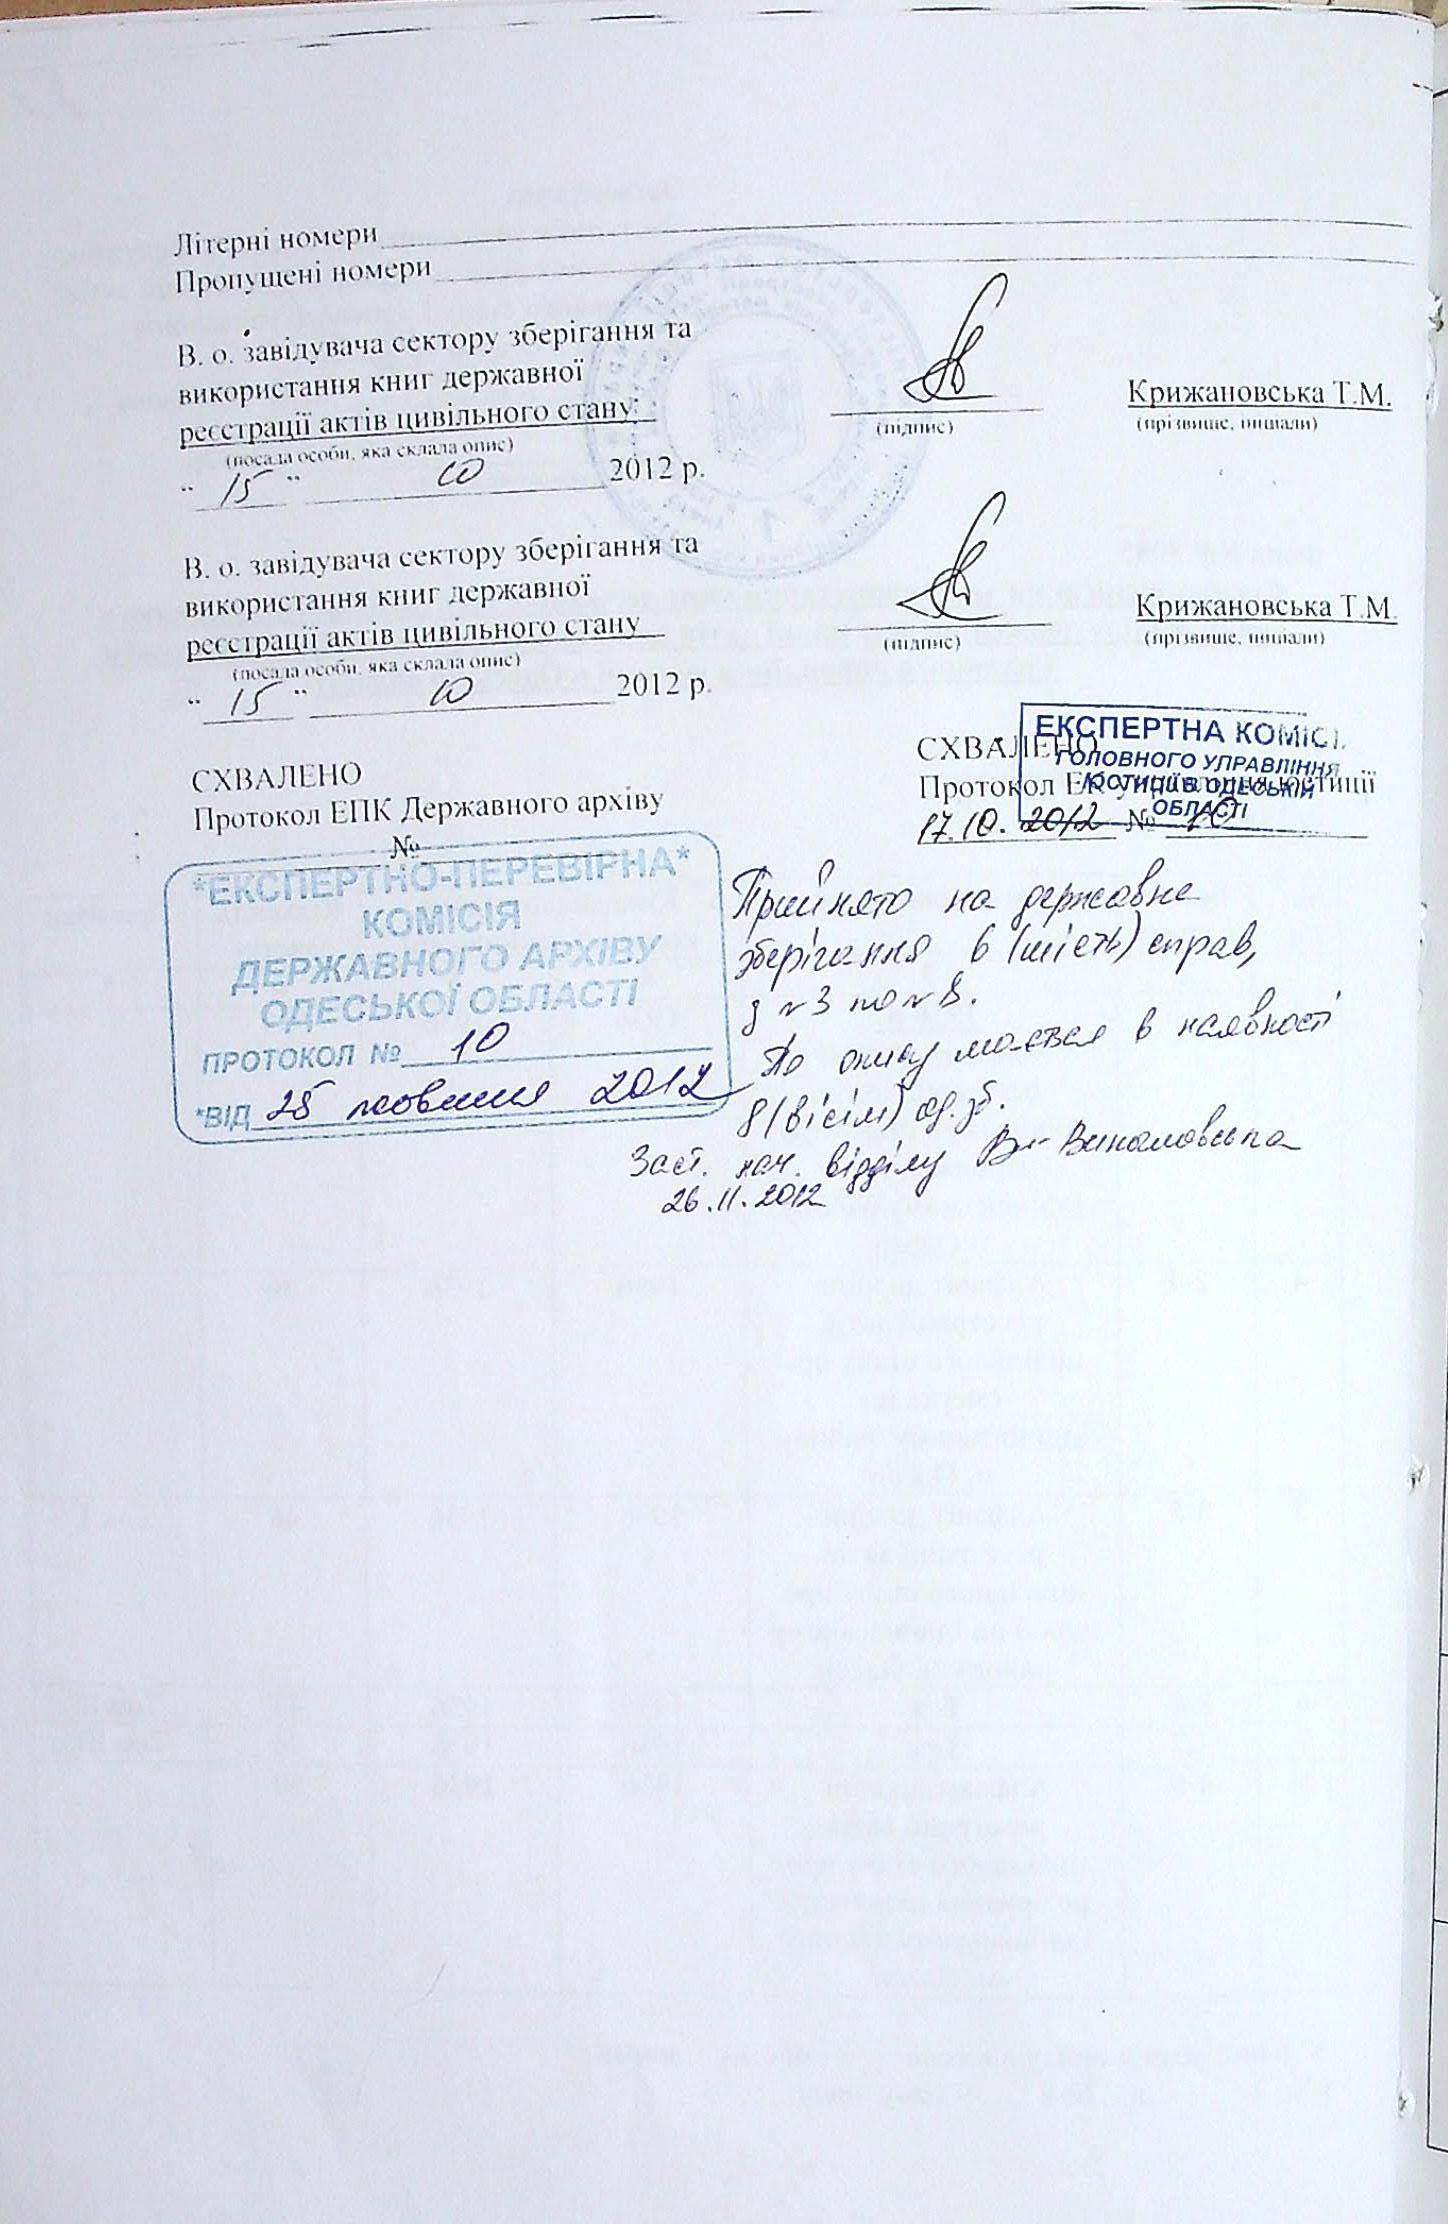 Літерні номери
Пропущені номери
В. о. завідувача сектору зберігання та
використання книг державної
реєстрації актів цивільного стану
(підпис)
Крижановська Т.М.
(прізвище, ініціали)
(посада особи, яка склала опис)
" 15 " 10 2012 р.
В. о. завідувача сектору зберігання та
використання книг державної
реєстрації актів цивільного стану
(підпис)
Крижановська Т.М.
(прізвище, ініціали)
(посада особи, яка склала опис)
" 15 " 10 2012 р.
СХВАЛЕНО
Протокол ЕПК Державного архіву
№
*ЕКСПЕРТНО-ПЕРЕВІРНА*
КОМІСІЯ
ДЕРЖАВНОГО АРХІВУ
ОДЕСЬКОЇ ОБЛАСТІ
ПРОТОКОЛ № 10
*ВІД 25 жовтня 2012
СХВАЛЕНО
Протокол ЕК управління юстиції
17.10. 2012 № 10
ЕКСПЕРТНА КОМІСІ
ГОЛОВНОГО УПРАВЛІННЯ
ЮСТИЦІЇ В ОДЕСЬКІЙ
ОБЛАСТІ
Прийнято на державне
зберігання 6 (шість) справ,
з №3 по №8.
По опису мається в наявності
8 (вісім) од. зб.
Заст. нач. відділу
26.11.2012